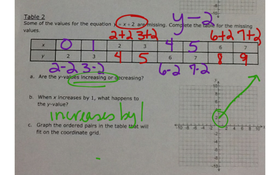 Table 2
Some of the values for the equation = x + 2 are missing. Complete the table for the missing
values.
y-2
2+2 3+2 6+2 7+2
x 0 1 2 3 4 5 6 7
y 2 3 4 5 6 7 8 9
2-2 3-2 6-2 7-2
a. Are the y-values increasing or decreasing?
b. When x increases by 1, what happens to
the y-value?
increases by 1
c. Graph the ordered pairs in the table that will
fit on the coordinate grid.